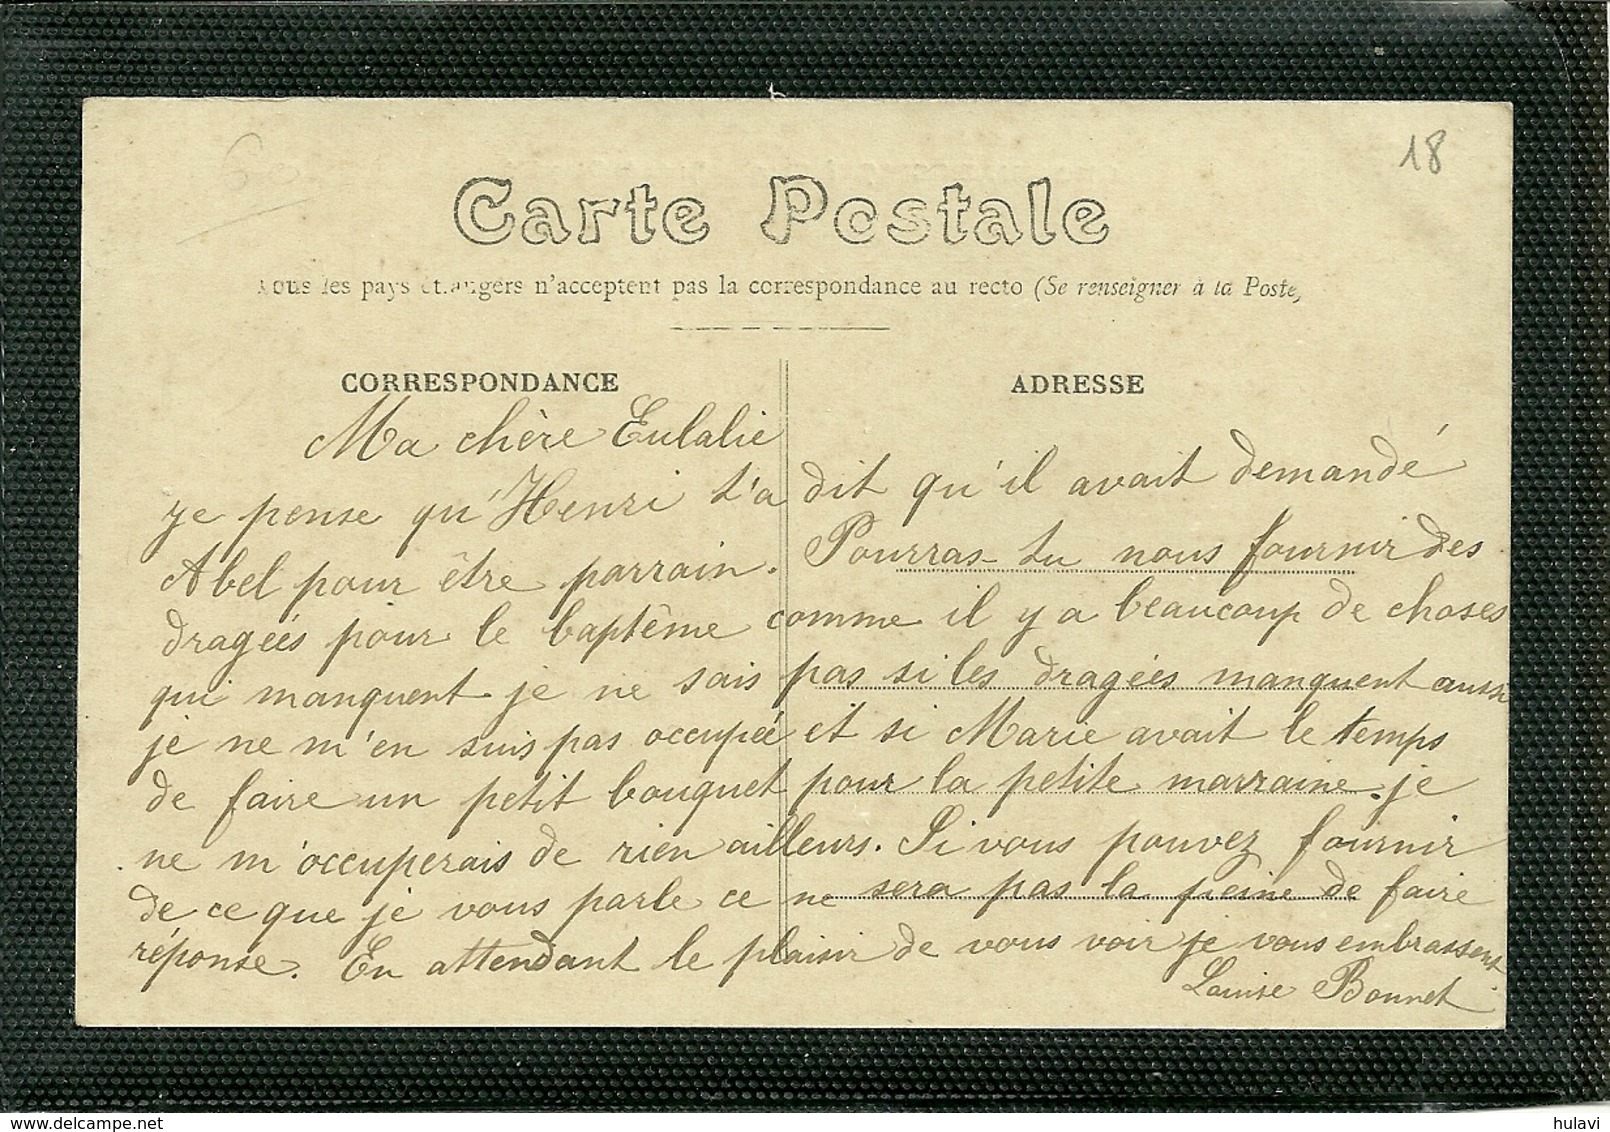 18
Carte Postale
Tous les pays étrangers n'acceptent pas la correspondance au recto (Se renseigner à la Poste)
CORRESPONDANCE
ADRESSE
Ma chère Eulalie
je pense qu'Henri t'a dit qu'il avait demandé
Abel pour être parrain. Pourras-tu nous fournir des
dragées pour le baptême comme il y a beaucoup de choses
qui manquent je ne sais pas si les dragées manquent aussi
je ne m'en suis pas occupée et si Marie avait le temps
de faire un petit bouquet pour la petite marraine. je
ne m'occuperais de rien ailleurs. Si vous pouvez fournir
de ce que je vous parle ce ne sera pas la peine de faire
réponse. En attendant le plaisir de vous voir je vous embrassent
Louise Bonnet
hulavi